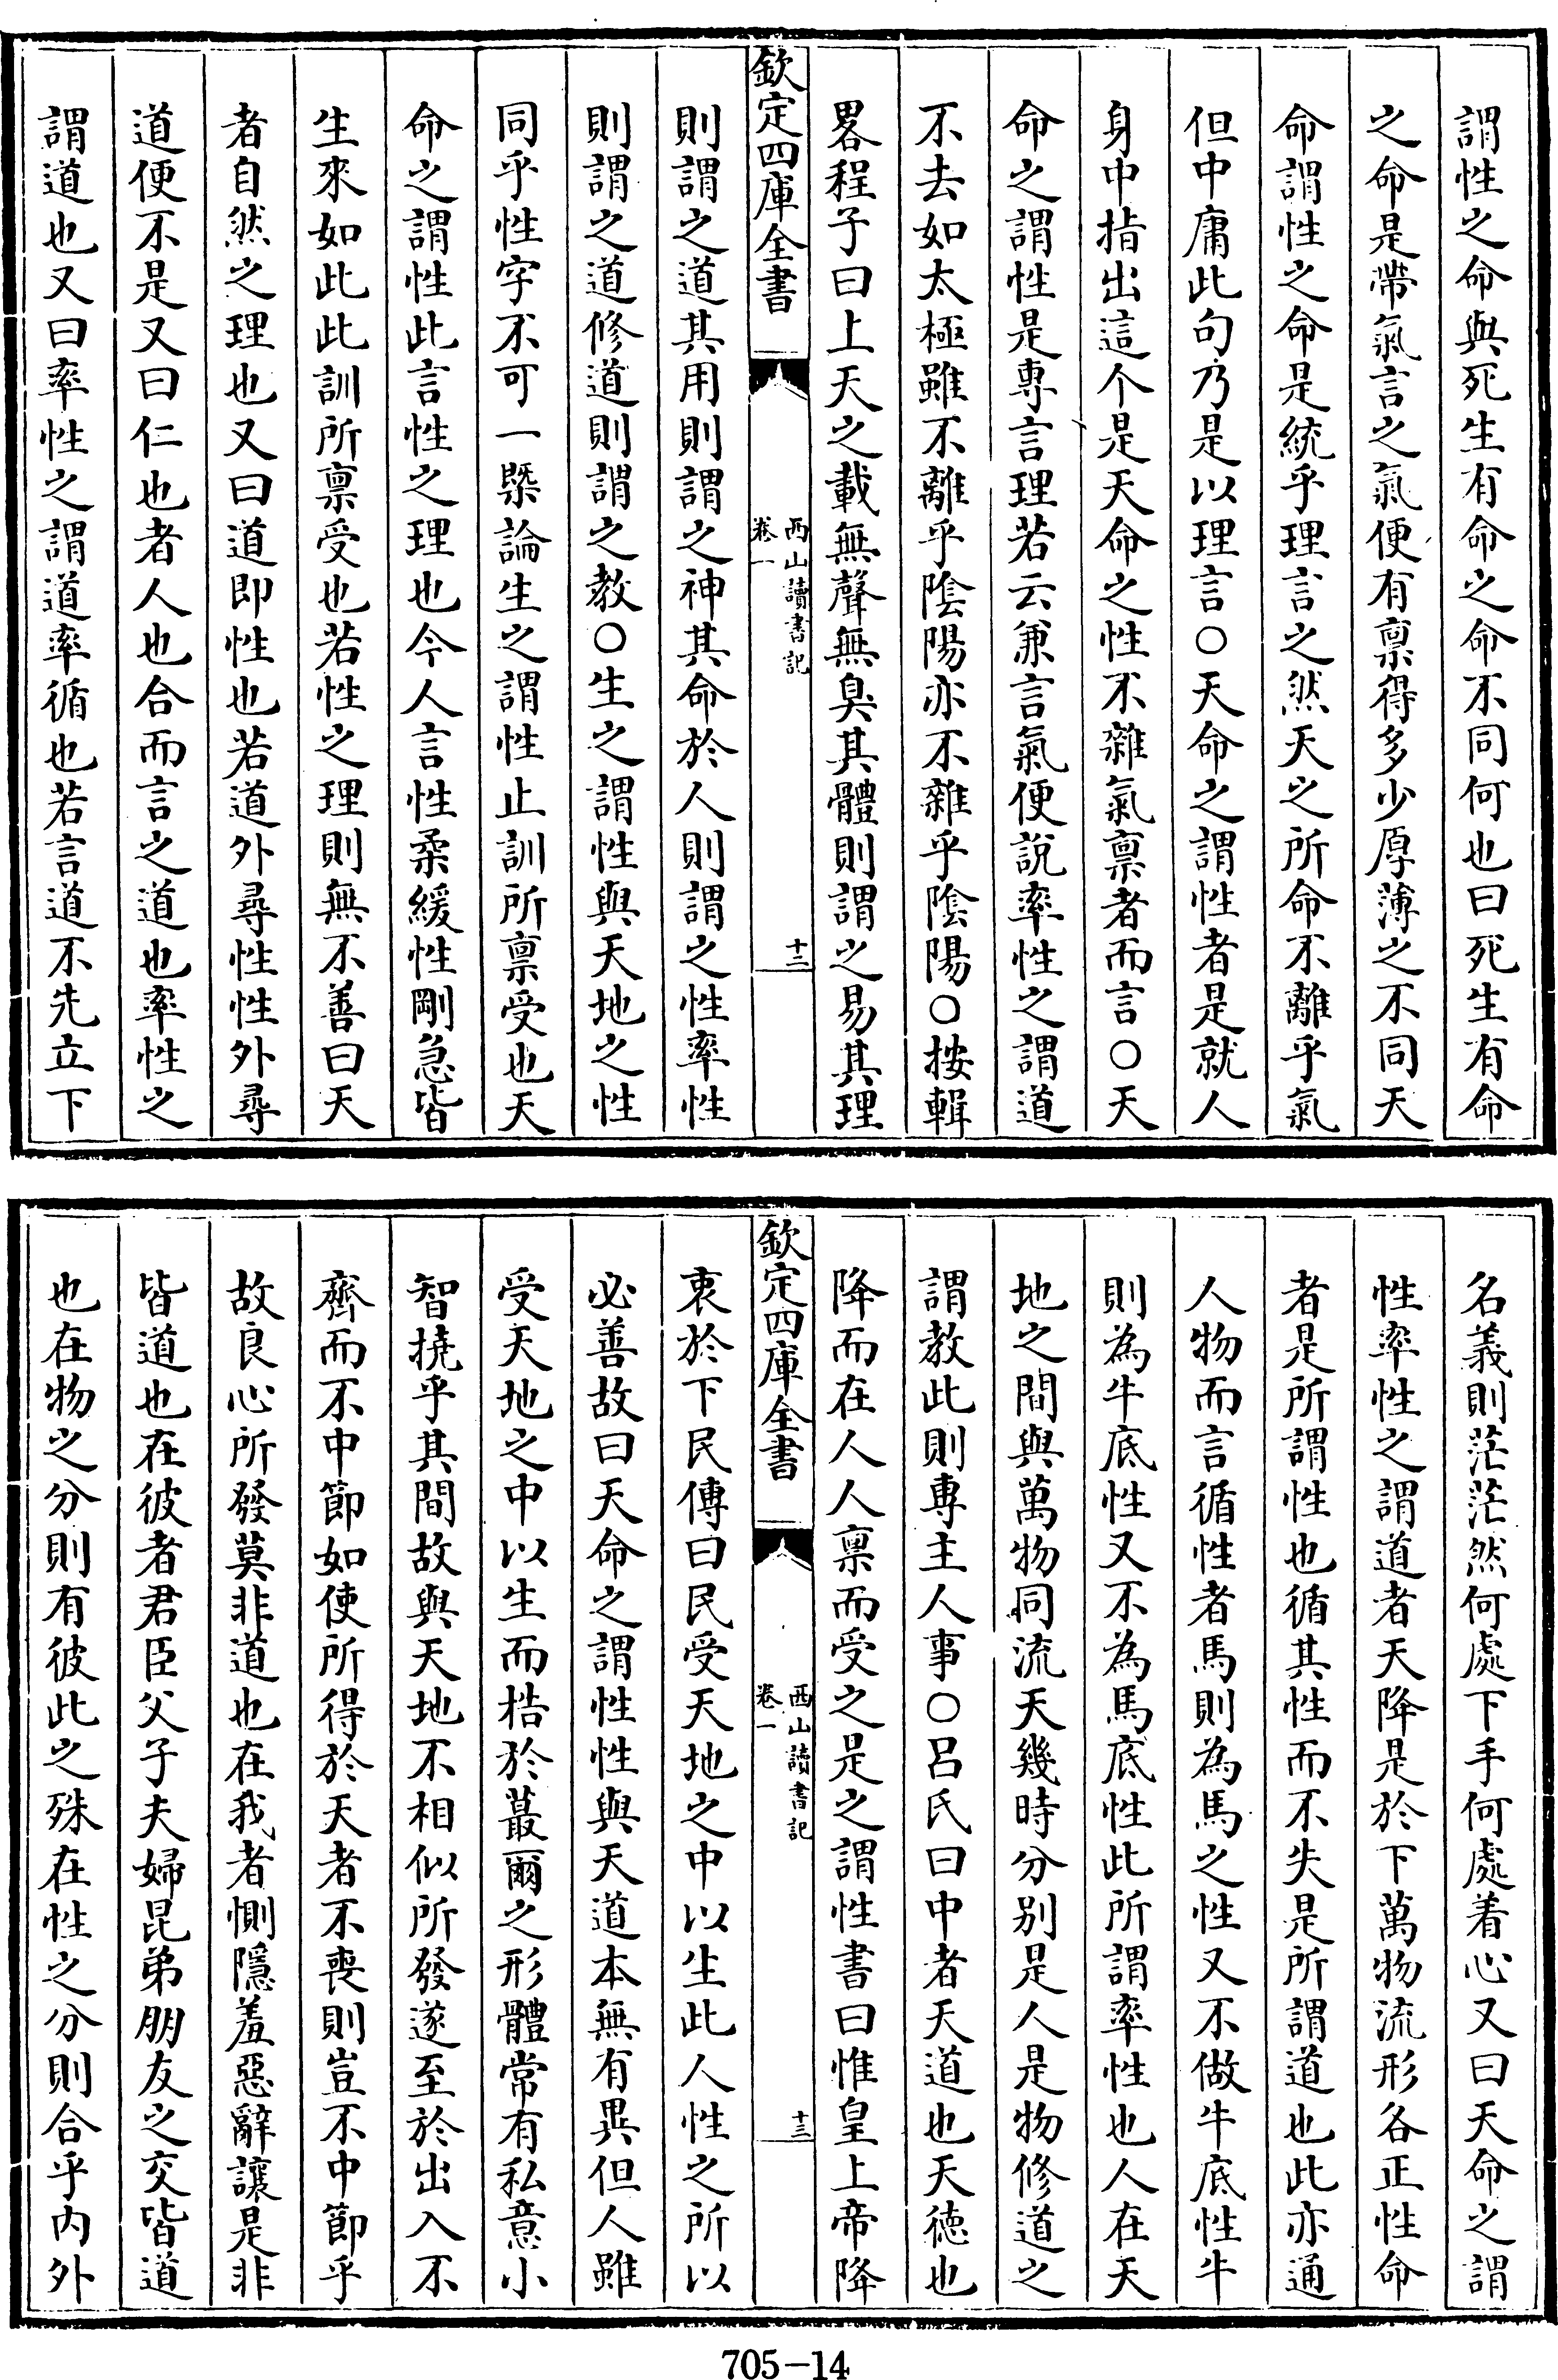 謂性之命與死生有命之命不同何也曰死生有命
之命是帶氣言之氣便有禀得多少厚薄之不同天
命謂性之命是統乎理言之然天之所命不離乎氣
但中庸此句乃是以理言○天命之謂性者是就人
身中指出這个是天命之性不雜氣禀者而言○天
命之謂性是專言理若云兼言氣便說率性之謂道
不去如太極雖不離乎陰陽亦不雜乎陰陽○按輯
畧程子曰上天之載無聲無臭其體則謂之易其理
欽定四庫全書
西山讀書記
卷一
十二
則謂之道其用則謂之神其命於人則謂之性率性
則謂之道修道則謂之教○生之謂性與天地之性
同乎性字不可一槩論生之謂性止訓所禀受也天
命之謂性此言性之理也今人言性柔緩性剛急皆
生來如此此訓所禀受也若性之理則無不善曰天
者自然之理也又曰道即性也若道外尋性性外尋
道便不是又曰仁也者人也合而言之道也率性之
謂道也又曰率性之謂道率循也若言道不先立下
名義則茫茫然何處下手何處着心又曰天命之謂
性率性之謂道者天降是於下萬物流形各正性命
者是所謂性也循其性而不失是所謂道也此亦通
人物而言循性者馬則為馬之性又不做牛底性牛
則為牛底性又不為馬底性此所謂率性也人在天
地之間與萬物同流天幾時分别是人是物修道之
謂教此則專主人事○呂氏曰中者天道也天德也
降而在人人禀而受之是之謂性書曰惟皇上帝降
欽定四庫全書
西山讀書記
卷一
十三
衷於下民傳曰民受天地之中以生此人性之所以
必善故曰天命之謂性性與天道本無有異但人雖
受天地之中以生而梏於蕞爾之形體常有私意小
智撓乎其間故與天地不相似所發遂至於出入不
齊而不中節如使所得於天者不喪則豈不中節乎
故良心所發莫非道也在我者惻隱羞惡辭讓是非
皆道也在彼者君臣父子夫婦昆弟朋友之交皆道
也在物之分則有彼此之殊在性之分則合乎内外
705-14